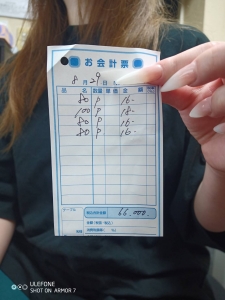 お会計票
8月29日
品名 数量 単価 金額
80 P 16-
100 P 18-
80 P 16-
80 P 16-
テーブル
税込合計金額 66,000.
ULEFONE
SHOT ON ARMOR 7